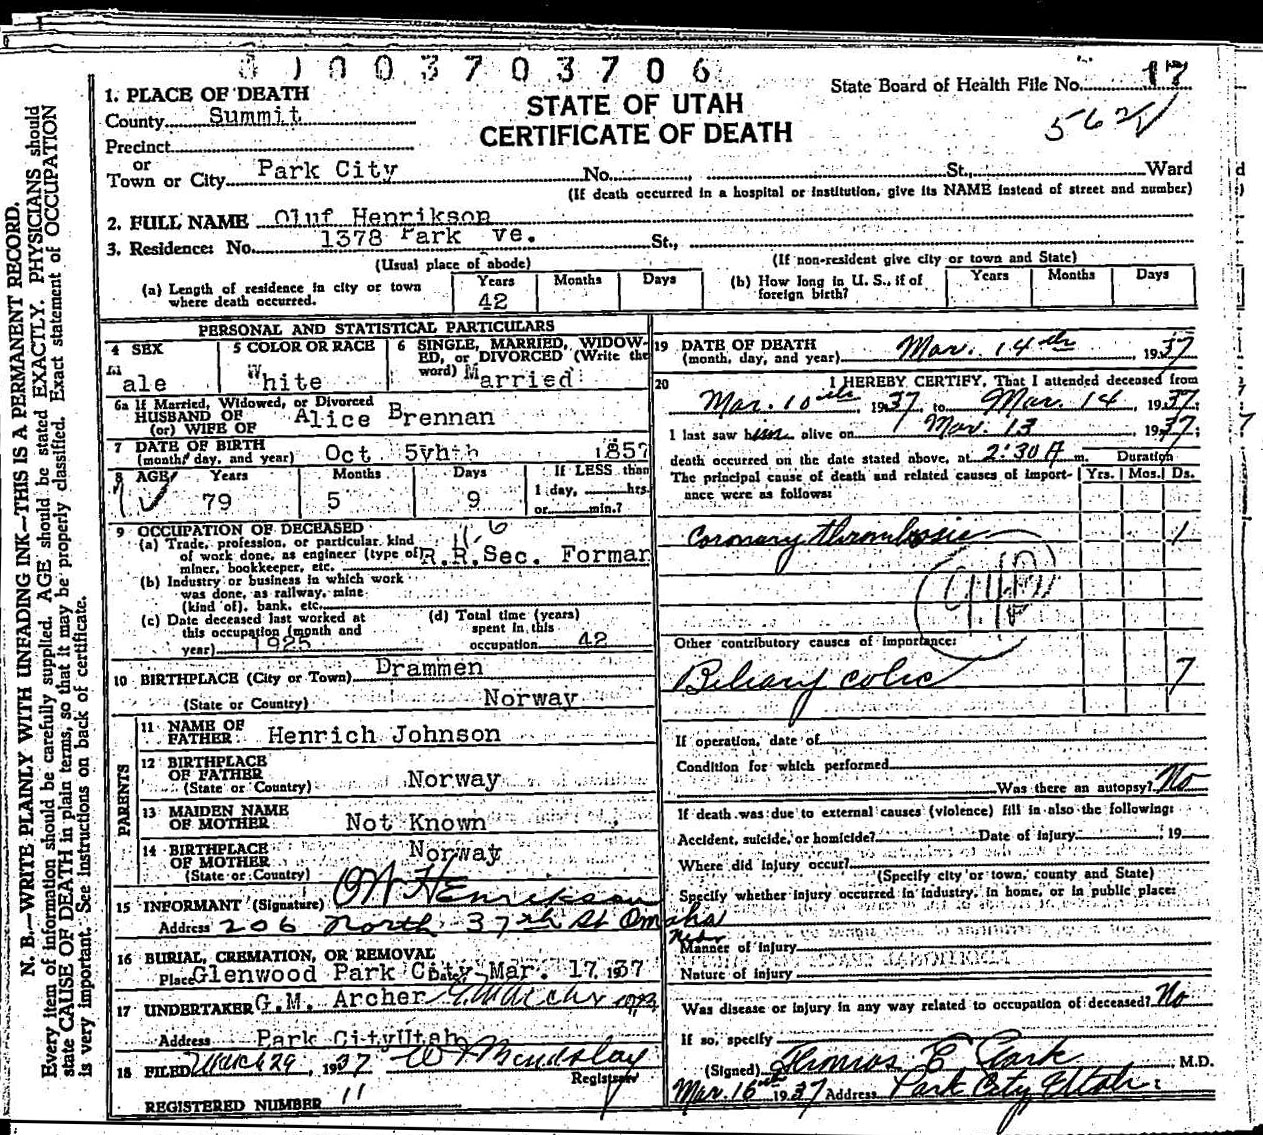 3 7 0 3 7 0 6
State Board of Health File No. 17
562
STATE OF UTAH
CERTIFICATE OF DEATH
1. PLACE OF DEATH
County Summit
Precinct
or
Town or City Park City No. St., Ward
(If death occurred in a hospital or institution, give its NAME instead of street and number)
2. FULL NAME Oluf Henrikson
3. Residence: No. 1378 Park ve. St.,
(Usual place of abode) (If non-resident give city or town and State)
(a) Length of residence in city or town where death occurred. Years 42 Months Days
(b) How long in U. S., if of foreign birth? Years Months Days
PERSONAL AND STATISTICAL PARTICULARS
4 SEX Male
5 COLOR OR RACE White
6 SINGLE, MARRIED, WIDOWED, or DIVORCED (Write the word) Married
6a If Married, Widowed, or Divorced
HUSBAND OF
(or) WIFE OF Alice Brennan
7 DATE OF BIRTH
(month, day, and year) Oct 5yhth 1857
8 AGE Years 79 Months 5 Days 9 If LESS than 1 day, hrs. or min.?
9 OCCUPATION OF DECEASED
(a) Trade, profession, or particular kind of work done, as engineer (type of) miner, bookkeeper, etc. R.R.Sec. Forman
(b) Industry or business in which work was done, as railway, mine (kind of), bank, etc.
(c) Date deceased last worked at this occupation (month and year) 1925
(d) Total time (years) spent in this occupation 42
10 BIRTHPLACE (City or Town) Drammen
(State or Country) Norway
PARENTS
11 NAME OF FATHER Henrich Johnson
12 BIRTHPLACE OF FATHER
(State or Country) Norway
13 MAIDEN NAME OF MOTHER Not Known
14 BIRTHPLACE OF MOTHER
(State or Country) Norway
15 INFORMANT (Signature) O W Henrikson
Address 206 North 37th St Omaha Nebr
16 BURIAL, CREMATION, OR REMOVAL
Place Glenwood Park City Mar. 17 1937
17 UNDERTAKER G.M. Archer
Address Park City Utah
18 FILED March 29, 1937
Registrar
REGISTERED NUMBER 11
19 DATE OF DEATH
(month, day, and year) Mar. 14th, 1937
20 I HEREBY CERTIFY, That I attended deceased from
Mar. 10th, 1937, to Mar. 14, 1937;
I last saw him alive on Mar. 13 1937;
death occurred on the date stated above, at 2:30 A m. Duration
The principal cause of death and related causes of importance were as follows: Yrs. Mos. Ds.
Coronary thrombosis 1
Other contributory causes of importance:
Biliary colic 7
If operation, date of
Condition for which performed
Was there an autopsy? No
If death was due to external causes (violence) fill in also the following:
Accident, suicide, or homicide? Date of injury 19
Where did injury occur?
(Specify city or town, county and State)
Specify whether injury occurred in industry, in home, or in public place:
Manner of injury
Nature of injury
Was disease or injury in any way related to occupation of deceased? No
If so, specify
(Signed) Thomas E Clark M.D.
Mar. 16th 1937 Address Park City Utah
N. B.—WRITE PLAINLY WITH UNFADING INK—THIS IS A PERMANENT RECORD.
Every item of information should be carefully supplied. AGE should be stated EXACTLY. PHYSICIANS should
state CAUSE OF DEATH in plain terms, so that it may be properly classified. Exact statement of OCCUPATION
is very important. See instructions on back of certificate.